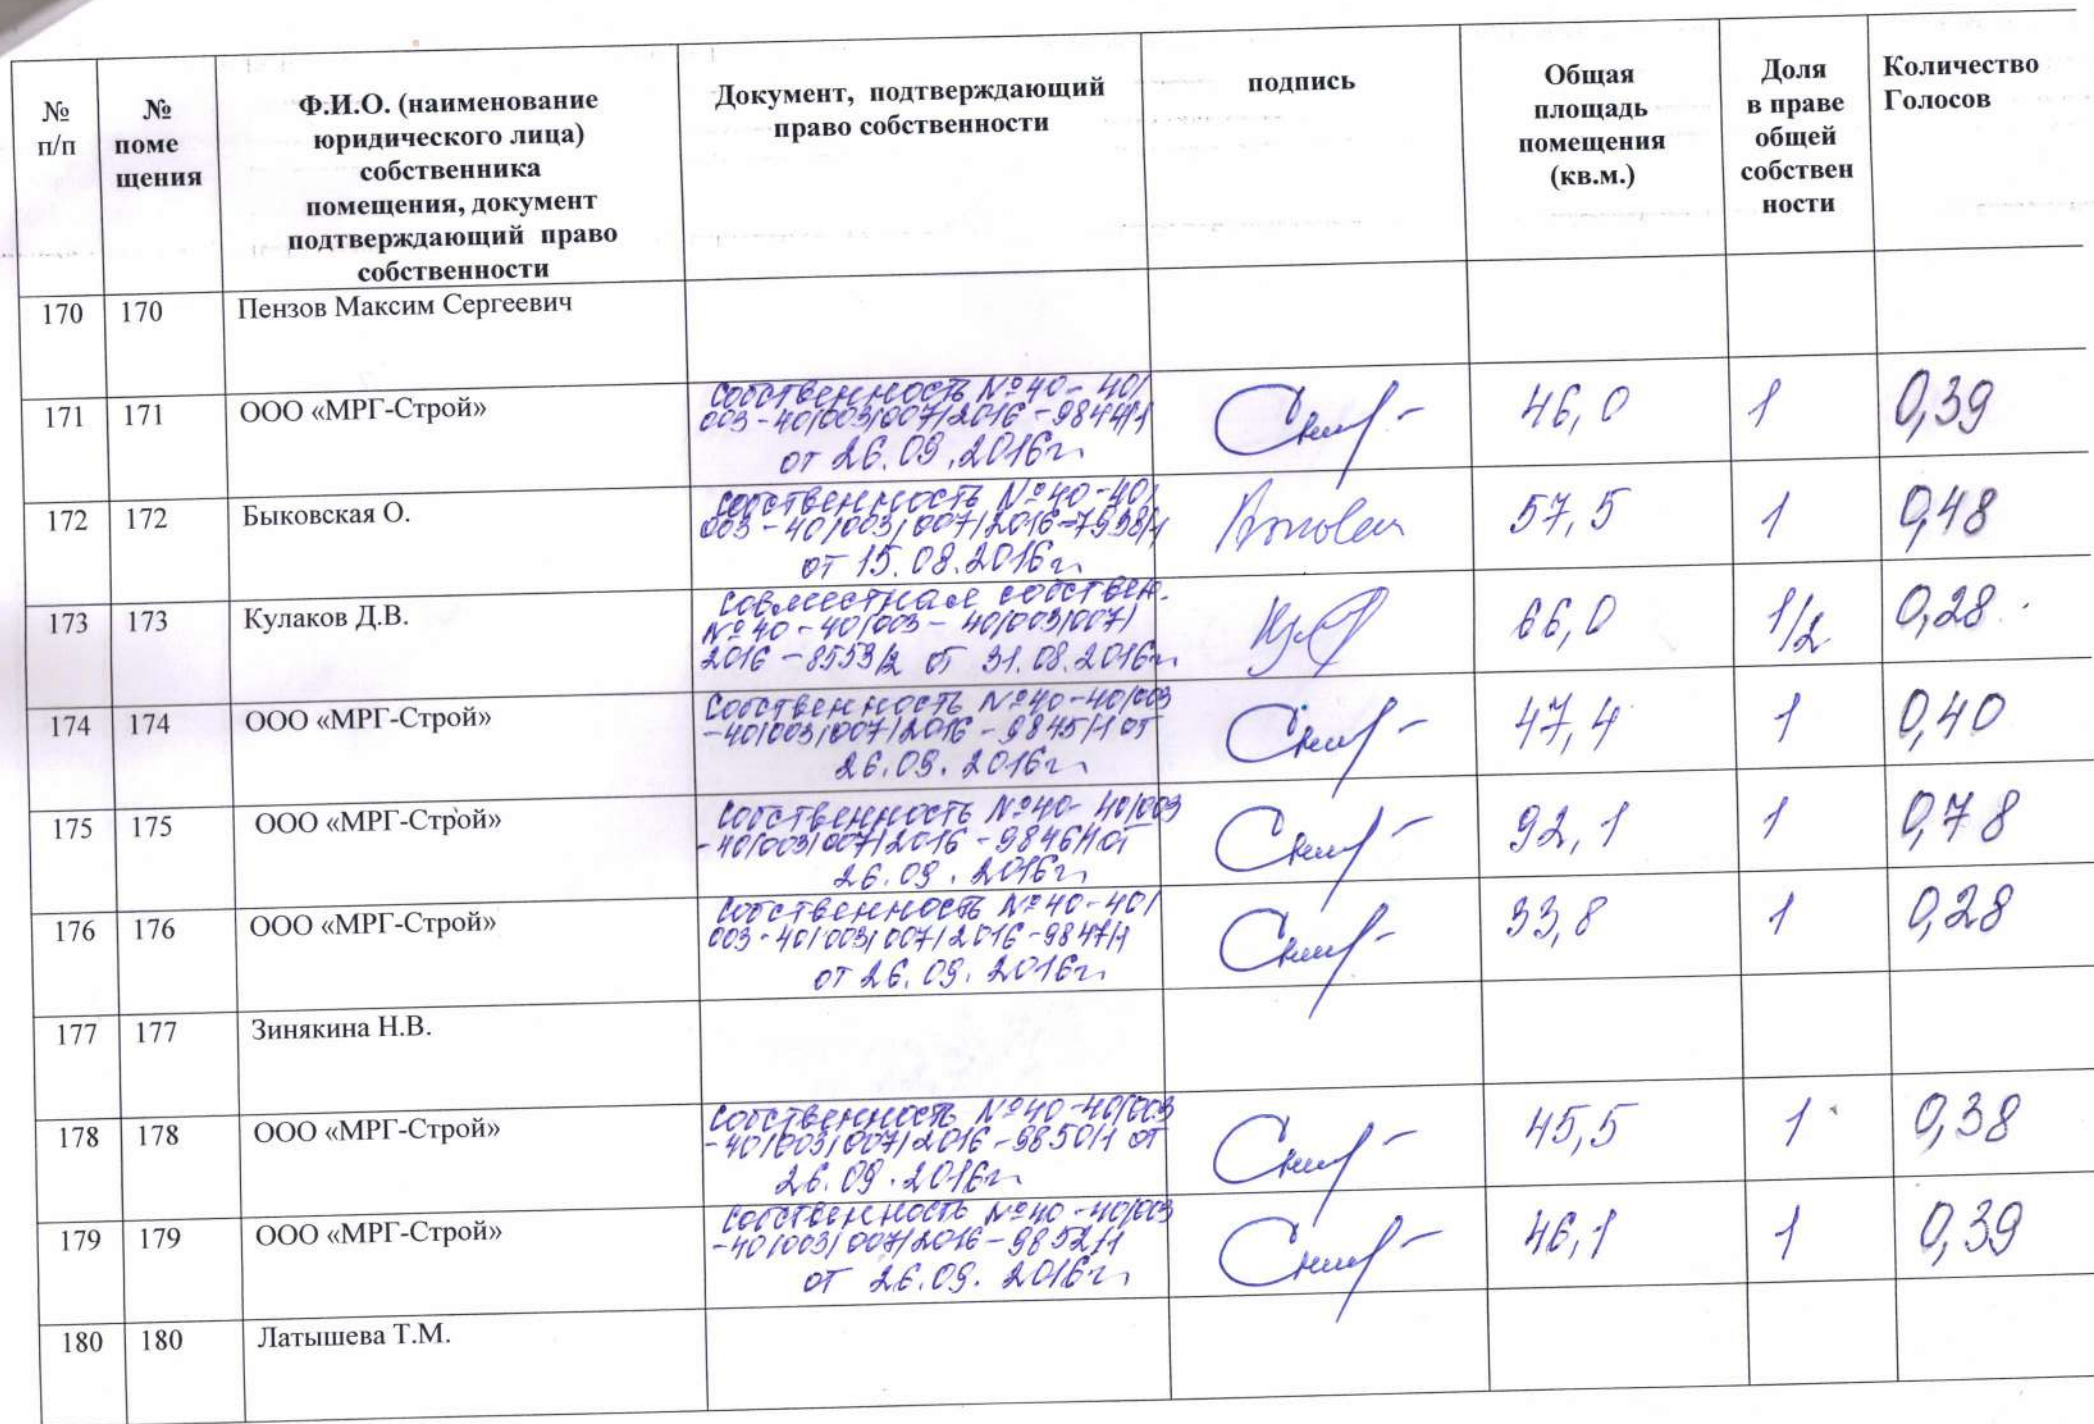 № п/п
№ поме щения
Ф.И.О. (наименование юридического лица) собственника помещения, документ подтверждающий право собственности
Документ, подтверждающий право собственности
подпись
Общая площадь помещения (кв.м.)
Доля в праве общей собствен ности
Количество Голосов
170 170 Пензов Максим Сергеевич
171 171 ООО «МРГ-Строй»
Собственность №40-40/
003-40/003/007/2016-9844/1
от 26.09.2016г.
46,0 1 0,39
172 172 Быковская О.
Собственность №40-40/
003-40/003/007/2016-7938/1
от 15.08.2016г.
57,5 1 0,48
173 173 Кулаков Д.В.
Совместная собствен.
№40-40/003-40/003/007/
2016-8553/2 от 31.08.2016г.
66,0 1/2 0,28
174 174 ООО «МРГ-Строй»
Собственность №40-40/003
-40/003/007/2016-9845/1 от
26.09.2016г.
47,4 1 0,40
175 175 ООО «МРГ-Строй»
Собственность №40-40/003
-40/003/007/2016-9846/1 от
26.09.2016г.
92,1 1 0,78
176 176 ООО «МРГ-Строй»
Собственность №40-40/
003-40/003/007/2016-9847/1
от 26.09.2016г.
33,8 1 0,28
177 177 Зинякина Н.В.
178 178 ООО «МРГ-Строй»
Собственность №40-40/003
-40/003/007/2016-9850/1 от
26.09.2016г.
45,5 1 0,38
179 179 ООО «МРГ-Строй»
Собственность №40-40/003
-40/003/007/2016-9852/1
от 26.09.2016г.
46,1 1 0,39
180 180 Латышева Т.М.